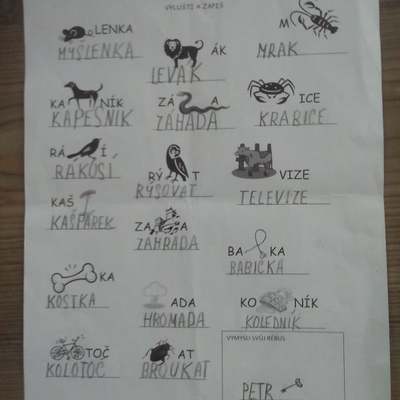 VYLUŠTI A ZAPIŠ
LENKA
MYŠLENKA
ÁK
LEVÁK
M
MRAK
KA NÍK
KAPESNÍK
ZÁ A
ZÁHADA
ICE
KRABICE
RÁ Í
RÁKOSÍ
RÝ T
RÝSOVAT
VIZE
TELEVIZE
KAŠ
KAŠPÁREK
ZA A
ZAHRADA
BA KA
BABIČKA
KA
KOSTKA
ADA
HROMADA
KO NÍK
KOLEDNÍK
TOČ
KOLOTOČ
AT
BROUKAT
VYMYSLI SVŮJ RÉBUS
PETR